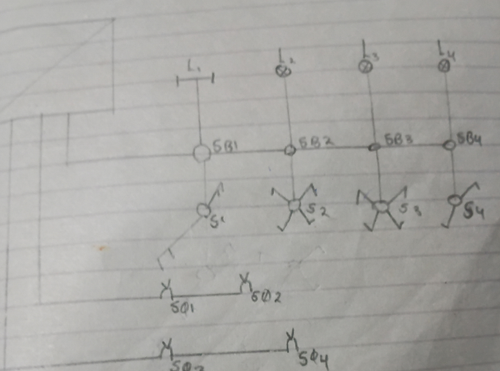 L1 L2 L3 L4
SB1 SB2 SB3 SB4
S1 S2 S3 S4
SO1 SO2
SO4